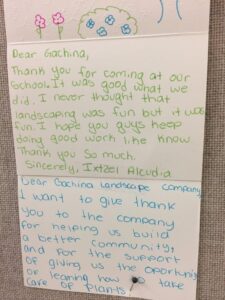 Dear Gachina,
Thank you for coming at our
School. It was good what we
did. I never thought that
landscaping was fun but it was
fun. I hope you guys keep
doing good work like know.
Thank you so much.
Sincerely, Ixtzel Alcudia
Dear Gachina Landscape Company
I want to give thank
you to the company
for helping us build
a better community,
and for the support
of giving us the oportunity
of learning how to take
care of plants.